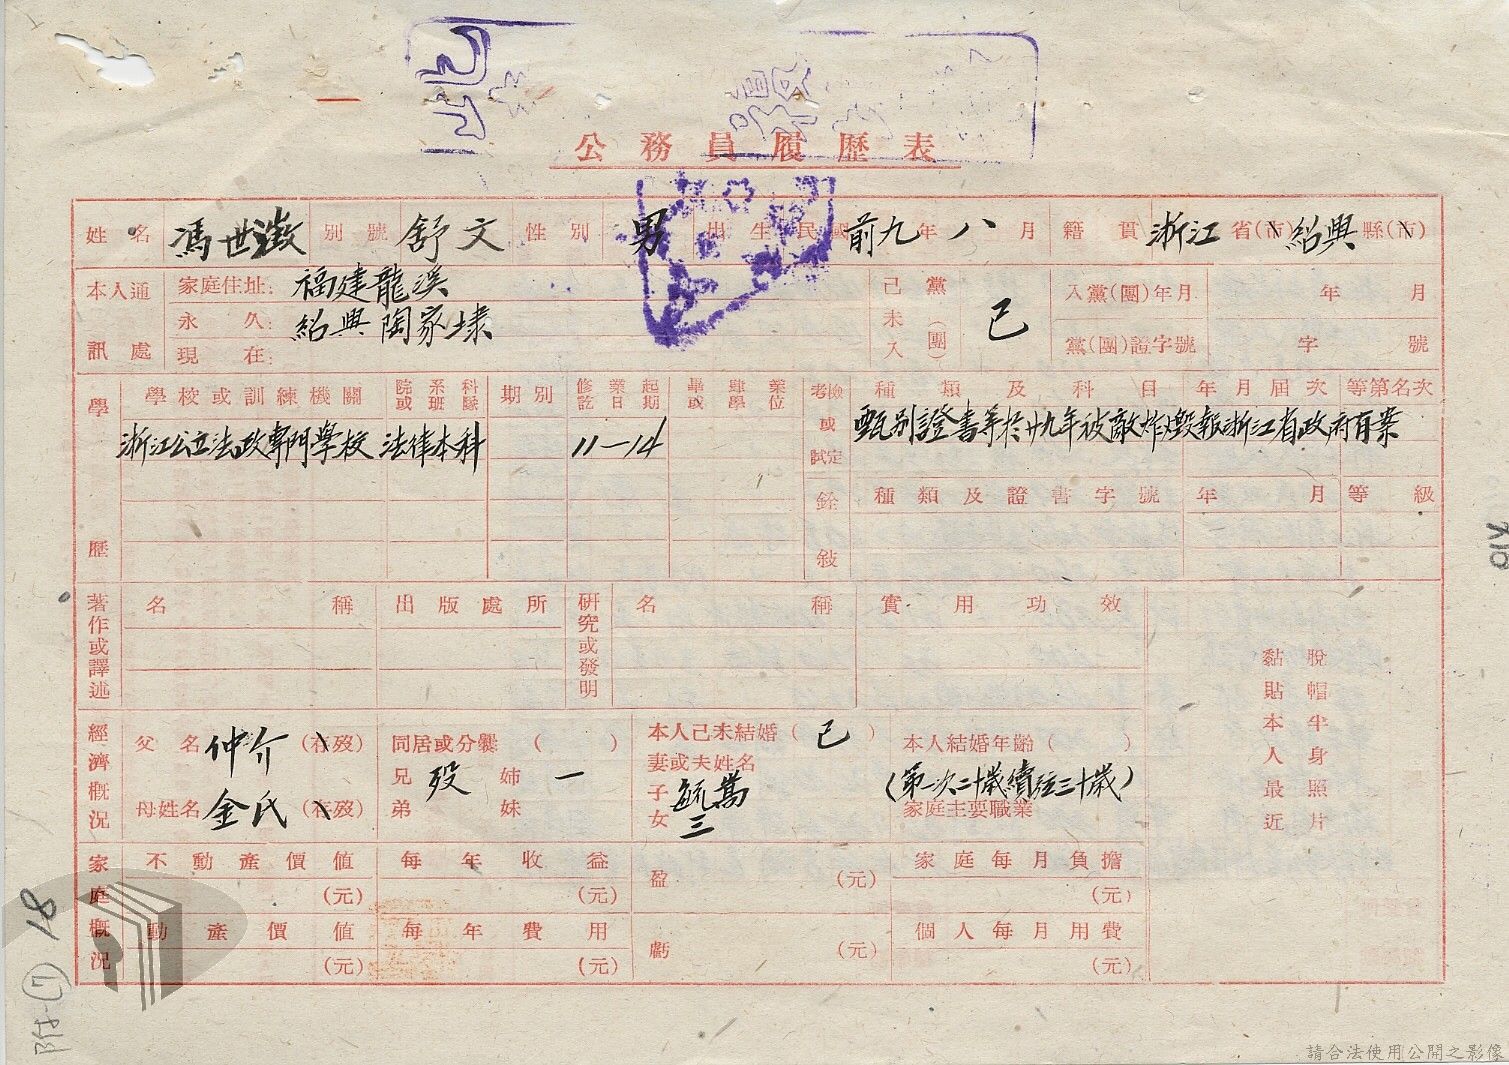 公務員履歷表
姓名 馮世澂 別號 舒文 性別 男 出生民國 前九年八月 籍貫 浙江省(市)紹興縣(市)
本人通訊處 家庭住址: 福建龍溪 己未入黨(團) 已 入黨(團)年月 年 月
永久: 紹興陶家埭
現在: 黨(團)證字號 字 號
學歷 學校或訓練機關 院或 系班 科隊 期別 修業起訖日期 畢肄業或學位 考試或檢定 種類及科目 年月屆次 等第名次
浙江公立法政專門學校 法律本科 11—14 甄別證書等於廿九年被敵炸燬報浙江省政府有案
銓敍 種類及證書字號 年月 等級
著作或譯述 名稱 出版處所 研究或發明 名稱 實用功效
黏貼本人最近
脫帽半身照片
經濟概況 父名 仲介 (存歿) 同居或分爨( ) 本人己未結婚(已) 本人結婚年齡( )
兄 歿 姊 一 妻或夫姓名 (第一次二十歲續弦三十歲)
母姓名 金氏 (存歿) 弟 妹 子 女 三 家庭主要職業
家庭概況 不動產價值 每年收益 盈 (元) 家庭每月負擔
(元) (元) (元)
動產價值 每年費用 虧 (元) 個人每月用費
(元) (元) (元)
附(7) 18
210
請合法使用公開之影像